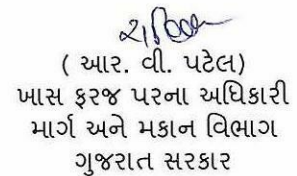 ( આર. વી. પટેલ)
ખાસ ફરજ પરના અધિકારી
માર્ગ અને મકાન વિભાગ
ગુજરાત સરકાર